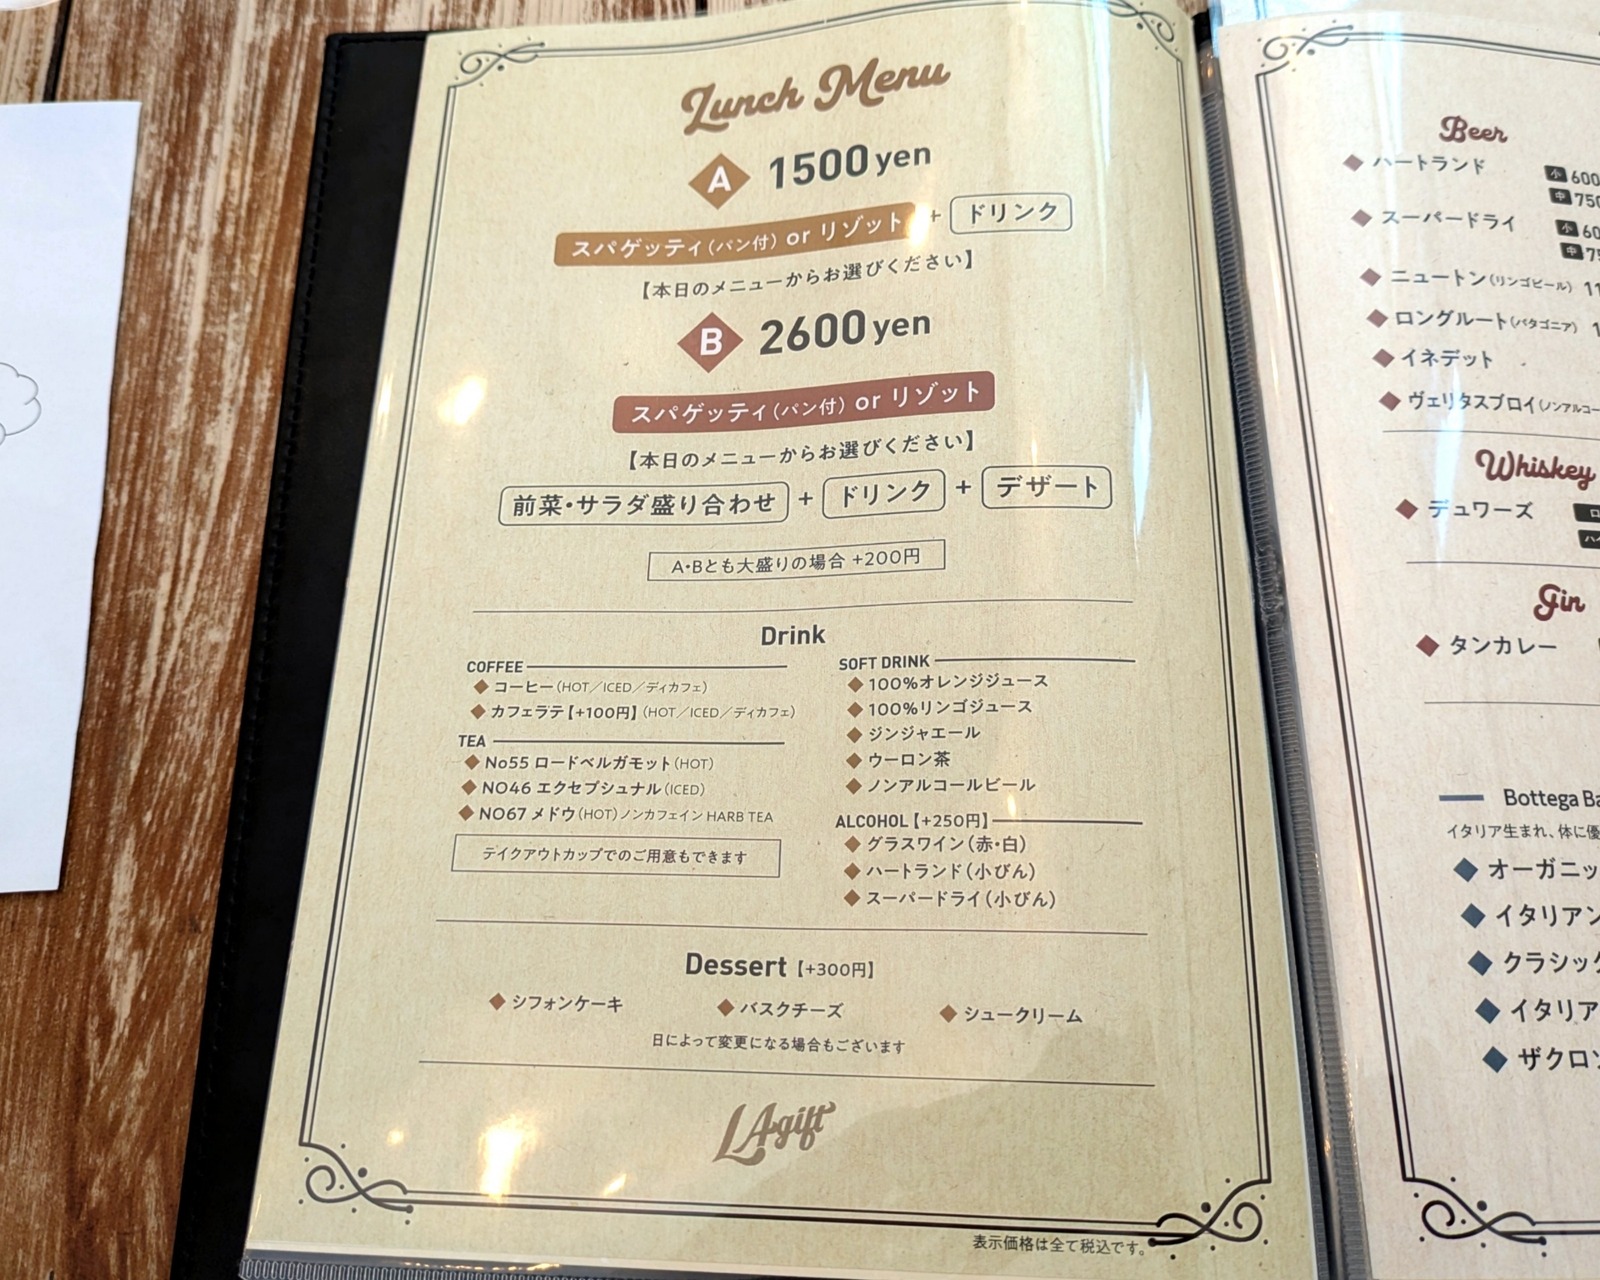 Lunch Menu
A 1500yen
スパゲッティ(パン付) or リゾット + ドリンク
【本日のメニューからお選びください】
B 2600yen
スパゲッティ(パン付) or リゾット
【本日のメニューからお選びください】
前菜・サラダ盛り合わせ + ドリンク + デザート
A・Bとも大盛りの場合 +200円
Drink
COFFEE
コーヒー(HOT/ICED/ディカフェ)
カフェラテ【+100円】(HOT/ICED/ディカフェ)
TEA
No55 ロードベルガモット(HOT)
NO46 エクセプショナル(ICED)
NO67 メドウ(HOT)ノンカフェイン HARB TEA
テイクアウトカップでのご用意もできます
SOFT DRINK
100%オレンジジュース
100%リンゴジュース
ジンジャエール
ウーロン茶
ノンアルコールビール
ALCOHOL【+250円】
グラスワイン(赤・白)
ハートランド(小びん)
スーパードライ(小びん)
Dessert【+300円】
シフォンケーキ バスクチーズ シュークリーム
日によって変更になる場合もございます
LAgift
表示価格は全て税込です。
Beer
ハートランド 小 600
中 750
スーパードライ 小
中
ニュートン(リンゴビール)
ロングルート(パタゴニア)
イネデット
ヴェリタスブロイ
Whiskey
デュワーズ
Gin
タンカレー
Bottega
イタリア生まれ、体に
イタリア